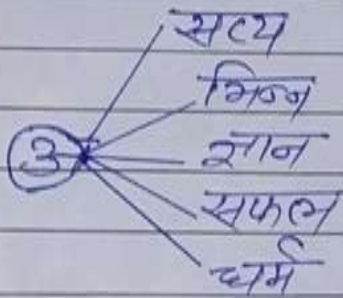 सत्य
भिन्न
अ ज्ञान
सफल
धर्म